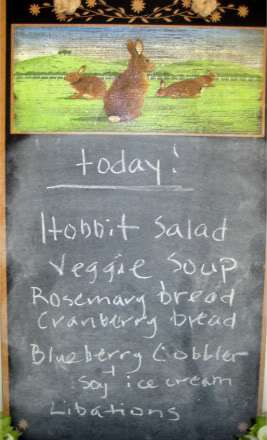 today!
Hobbit Salad
Veggie Soup
Rosemary bread
Cranberry bread
Blueberry Cobbler
+
soy ice cream
Libations